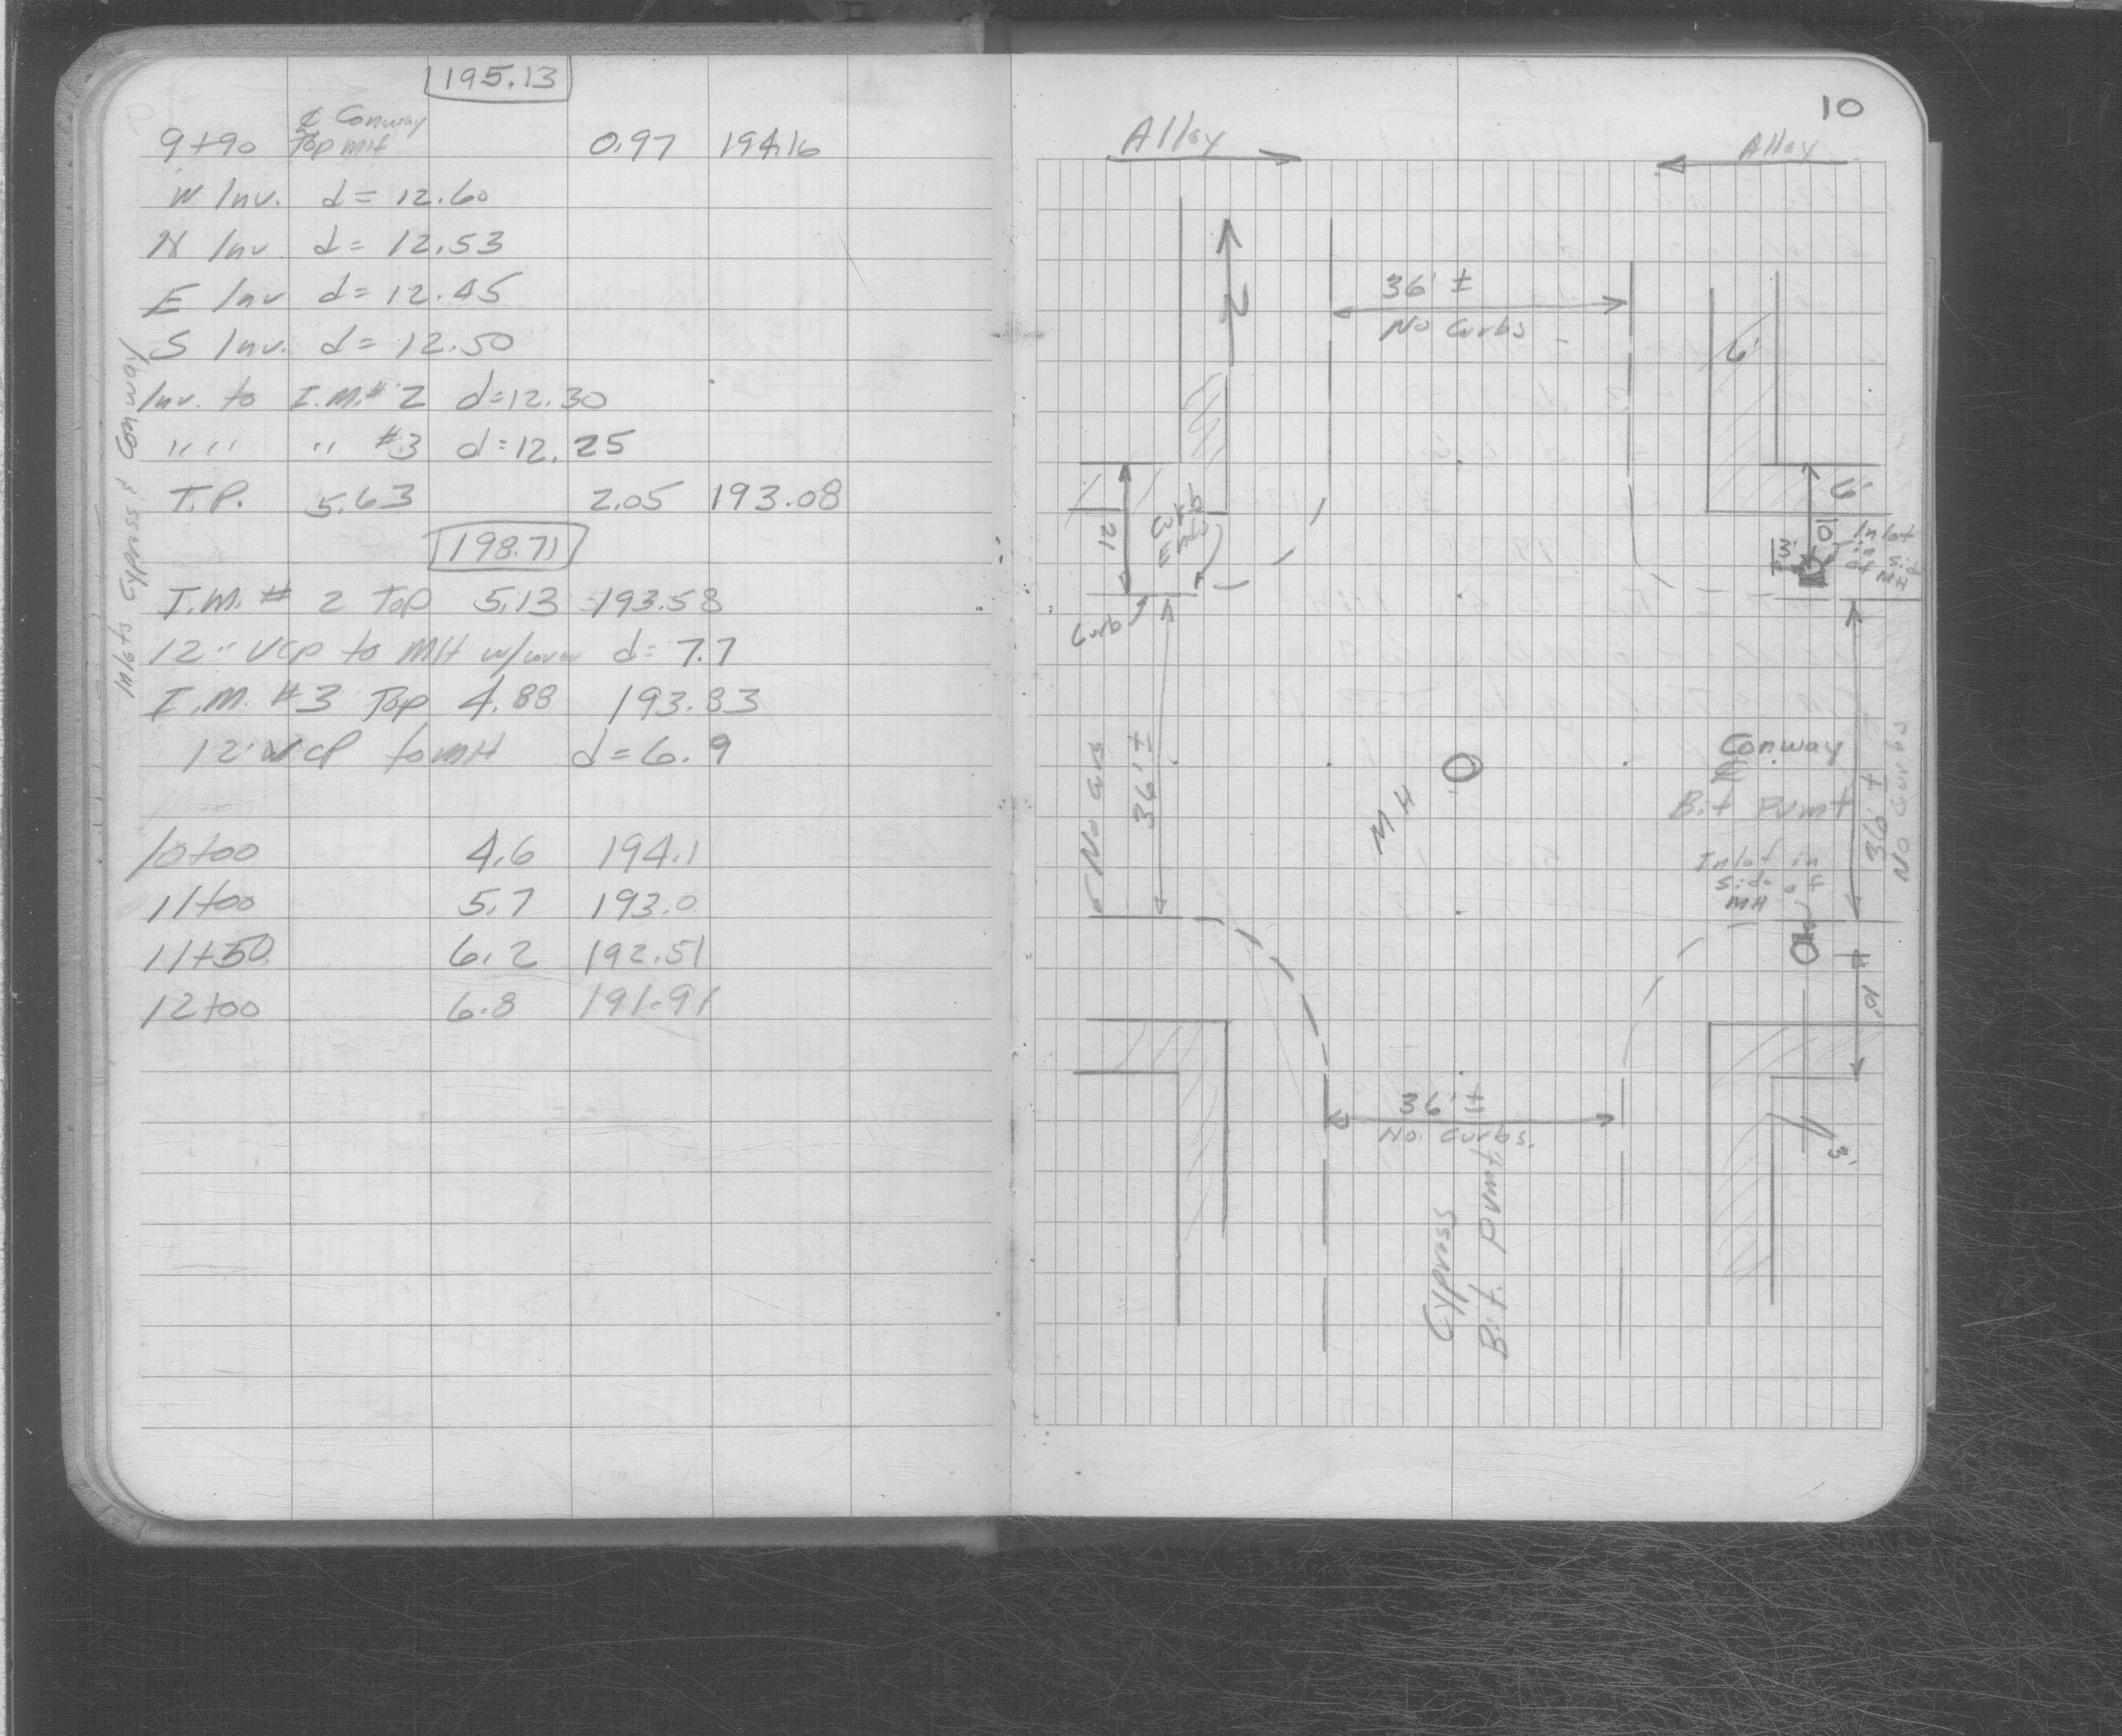 195.13
9+90 ℄ Conway
Top MH 0.97 194.16
W Inv. d= 12.60
N Inv. d= 12.53
E Inv d= 12.45
S Inv. d= 12.50
Inv. to I.M.# 2 d=12.30
" " " #3 d=12.25
T.P. 5.63 2.05 193.08
198.71
I.M. # 2 Top 5.13 193.58
12" VCP to MH d= 7.7
I.M. #3 Top 4.88 193.83
12" VCP to MH d=6.9
10+00 4.6 194.1
11+00 5.7 193.0
11+50 6.2 192.51
12+00 6.8 191.91
Inlets Cypress & Conway
10
Alley
Alley
N
36' ±
No Curbs
6'
6'
12
10'
3'
Inlet
in Side
of MH
Curb
No Curbs
36' ±
MH
Conway
Bit Pvmt
36' ±
No Curbs
Inlet in
Side of
MH
10'
36' ±
No Curbs.
3'
Cypress
Bit. Pvmt